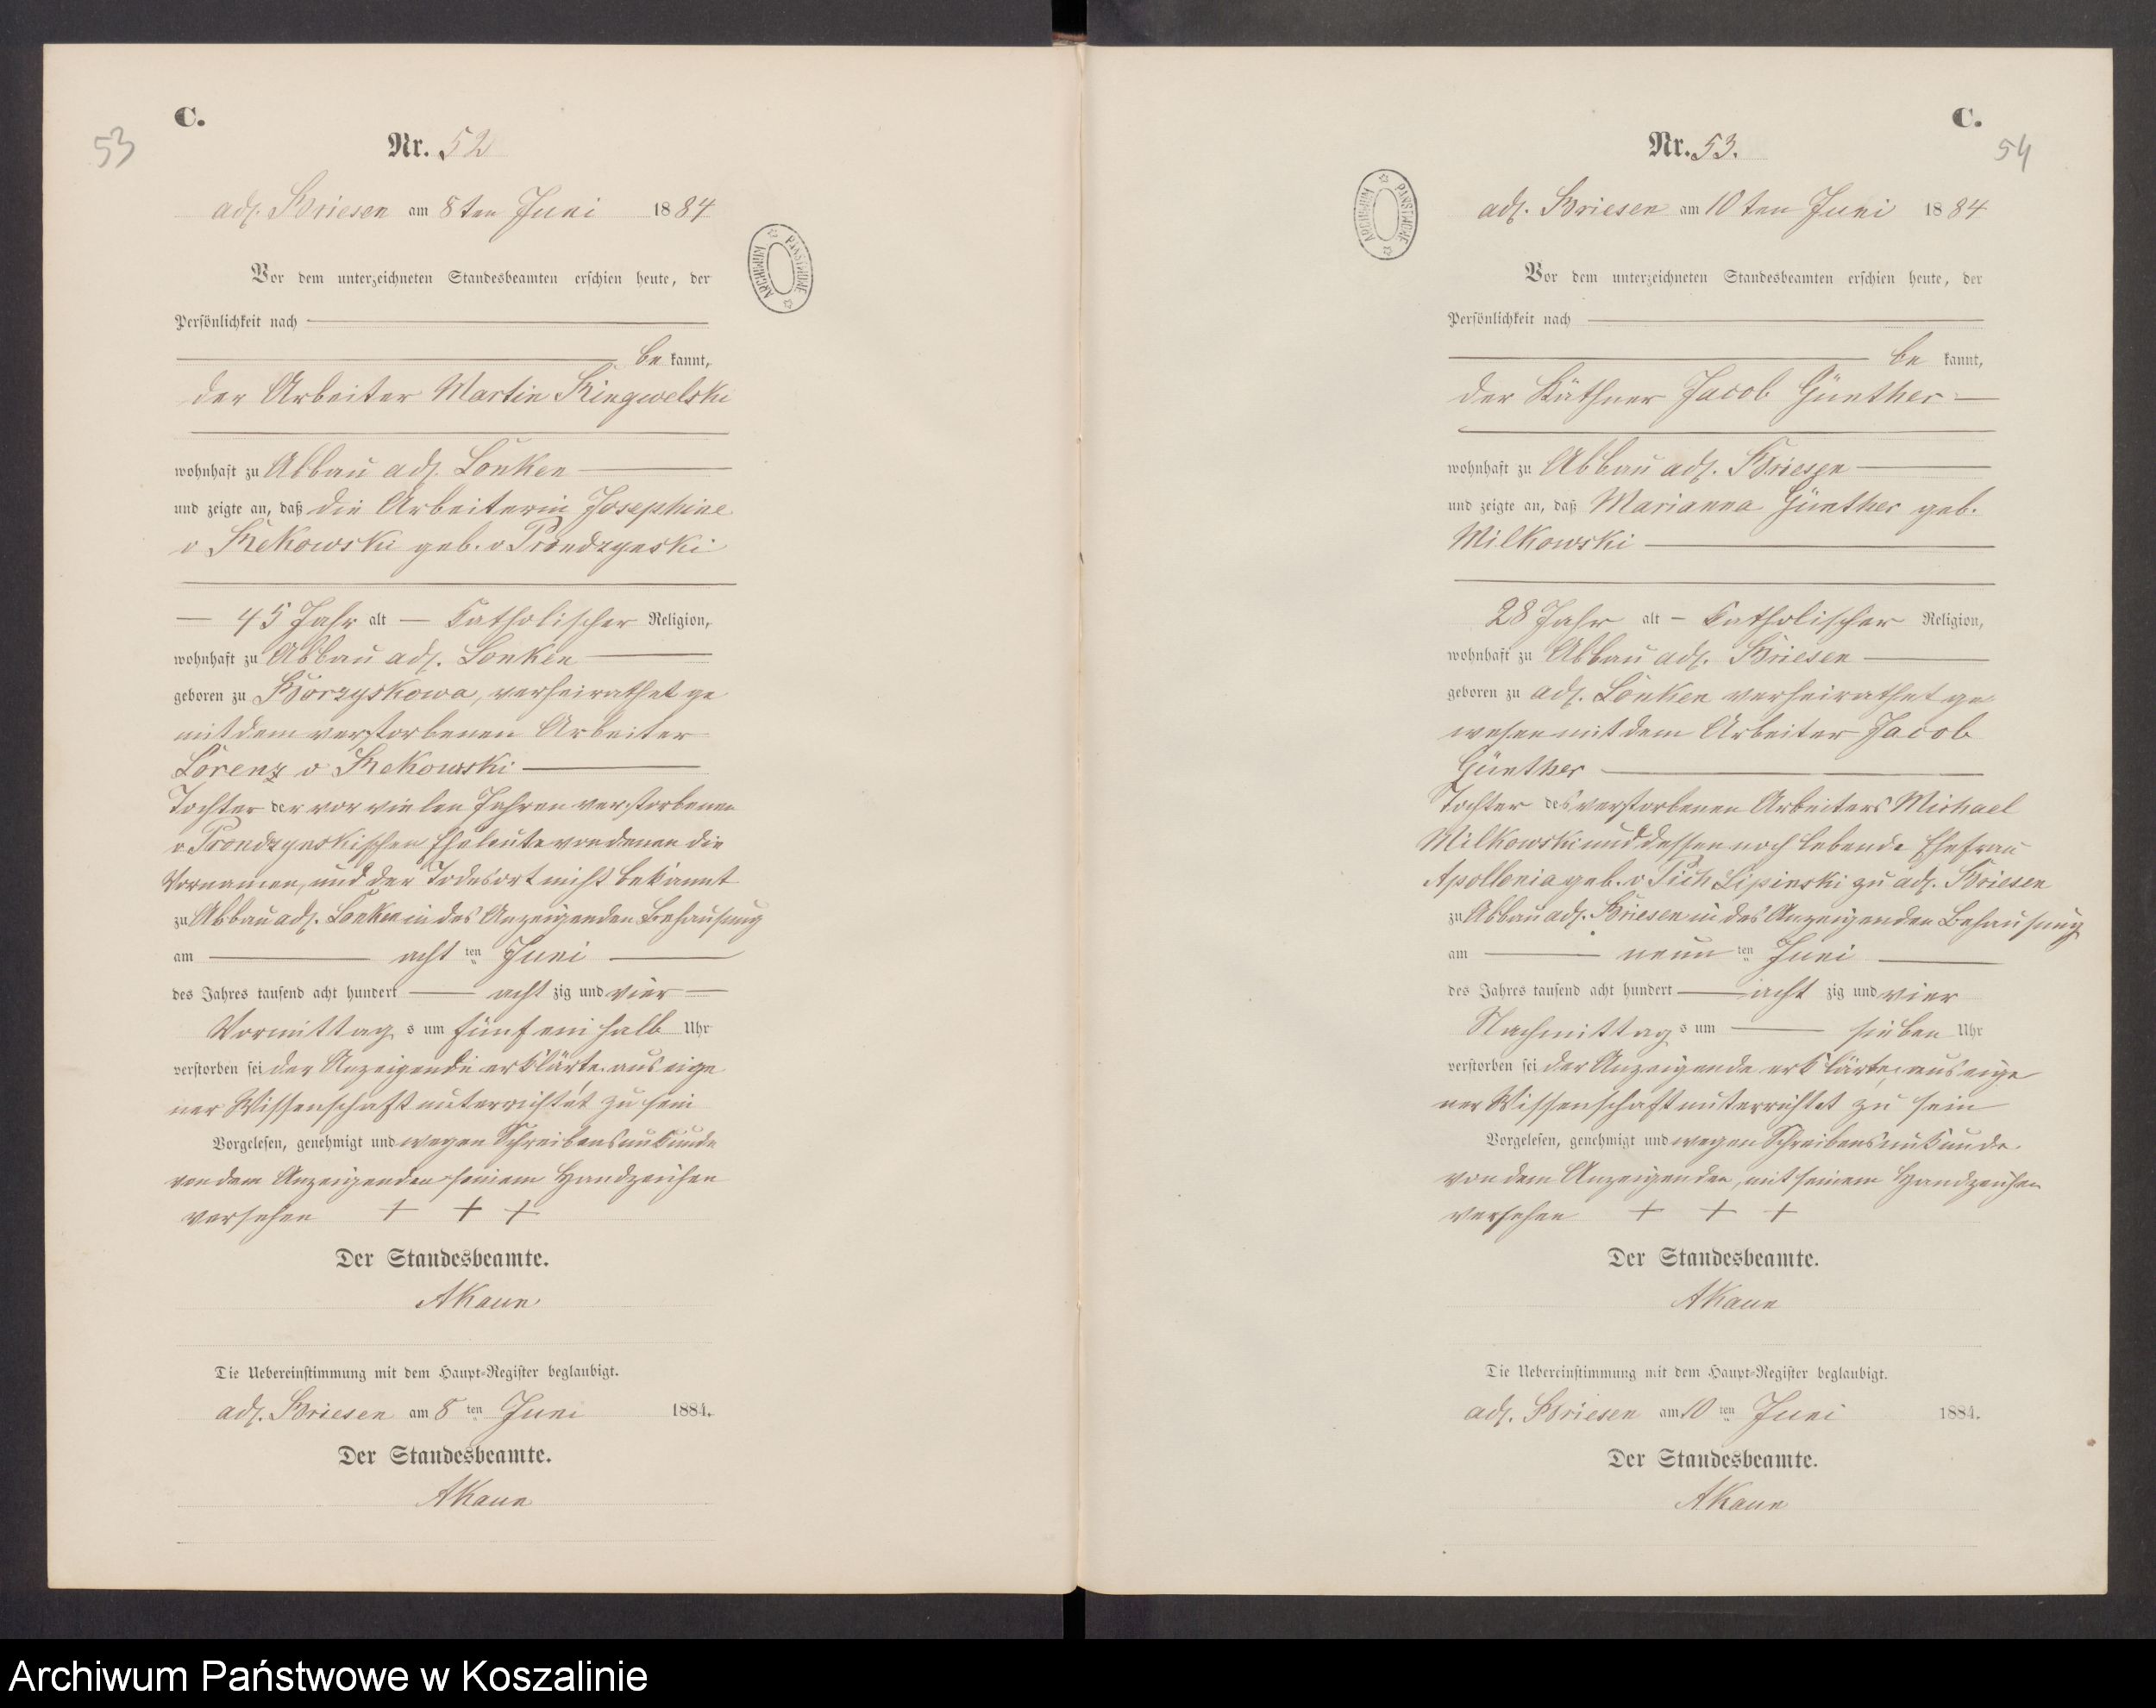 C.
53
Nr. 52
adl. Briesen am 8ten Juni 1884
Vor dem unterzeichneten Standesbeamten erschien heute, der
Persönlichkeit nach
be kannt,
der Arbeiter Martin Ringwelski
wohnhaft zu Abbau adl. Lonken
und zeigte an, daß die Arbeiterin Josephine
v Rekowski geb. v Prondzynski
45 Jahr alt – Catholischer Religion,
wohnhaft zu Abbau adl. Lonken
geboren zu Borzyskowa, verheirathet ge
mit dem verstorbenen Arbeiter
Lorenz v Rekowski
Tochter der vor vielen Jahren verstorbenen
v Prondzynskischen Eheleute von denen die
Vornamen, und der Todesort nicht bekannt
zu Abbau adl. Lonken in des Anzeigenden Behausung
am acht ten Juni
des Jahres tausend acht hundert acht zig und vier
Vormittag s um fünf ein halb Uhr
verstorben sei der Anzeigende erklärte aus eige
ner Wissenschaft unterrichtet zu sein
Vorgelesen, genehmigt und wegen Schreibensunkunde
von dem Anzeigenden seinem Handzeichen
versehen + + +
Der Standesbeamte.
AKaun
Die Uebereinstimmung mit dem Haupt-Register beglaubigt.
adl. Briesen am 8 ten Juni 1884.
Der Standesbeamte.
AKaun
ARCHIWUM PAŃSTWOWE
C.
54
Nr. 53.
adl. Briesen am 10 ten Juni 1884
Vor dem unterzeichneten Standesbeamten erschien heute, der
Persönlichkeit nach
be kannt,
der Käthner Jacob Günther
wohnhaft zu Abbau adl. Briesen
und zeigte an, daß Marianna Günther geb.
Milkowski
28 Jahr alt – Catholischer Religion,
wohnhaft zu Abbau adl. Briesen
geboren zu adl. Lonken verheirathet ge
wesen mit dem Arbeiter Jacob
Günther
Tochter des verstorbenen Arbeiters Michael
Milkowski und dessen noch lebende Ehefrau
Apollonia geb. v Pich Lipinski zu adl. Briesen
zu Abbau adl. Briesen in des Anzeigenden Behausung
am neun ten Juni
des Jahres tausend acht hundert acht zig und vier
Nachmittag s um sieben Uhr
verstorben sei der Anzeigende erklärte, aus eige
ner Wissenschaft unterrichtet zu sein
Vorgelesen, genehmigt und wegen Schreibensunkunde
von dem Anzeigenden, mit seinem Handzeichen
versehen + + +
Der Standesbeamte.
AKaun
Die Uebereinstimmung mit dem Haupt-Register beglaubigt.
adl. Briesen am 10 ten Juni 1884.
Der Standesbeamte.
AKaun
ARCHIWUM PAŃSTWOWE
Archiwum Państwowe w Koszalinie